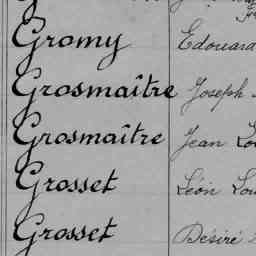 Gromy Edouard
Grosmaître Joseph
Grosmaître Jean
Grosset Léon
Grosset Désiré